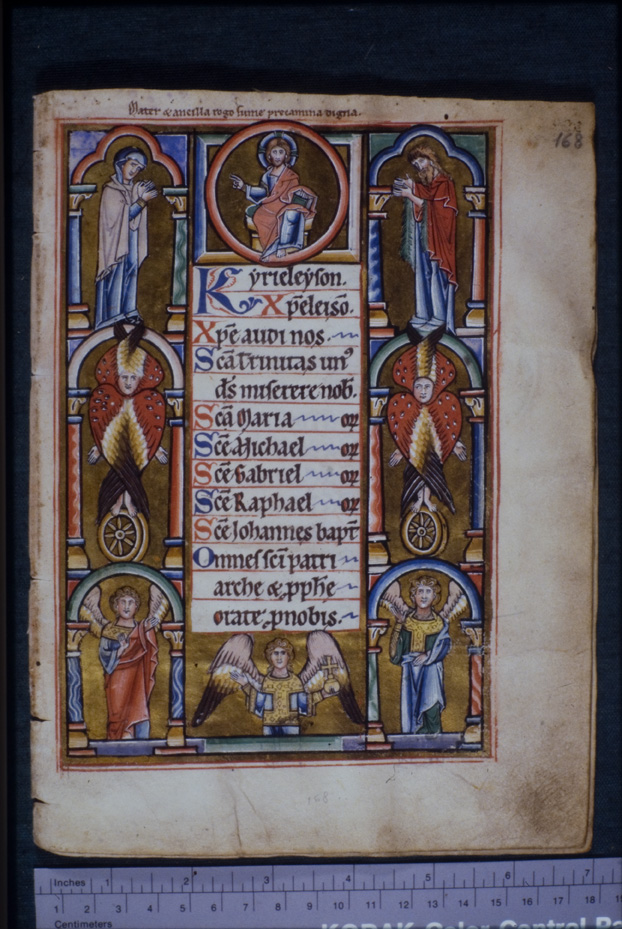 Mater & ancilla rogo sume precamina digna.
168
Kẏrieleẏson.
Xp̄eleisō.
Xp̄e audi nos.
Scā Trinitas unꝰ
ds̄ miserere nob̄.
Scā Maria oꝝ
Scē Michael oꝝ
Scē Gabriel oꝝ
Scē Raphael oꝝ
Scē Johannes bapt̄
Omnes scī patri
arche & ꝓph̄e
orate ꝓ nobis.
168
Inches 1 2 3 4 5 6 7
1 2 3 4 5 6 7 8 9 10 11 12 13 14 15 16 17 18
Centimeters
KODAK Color Control